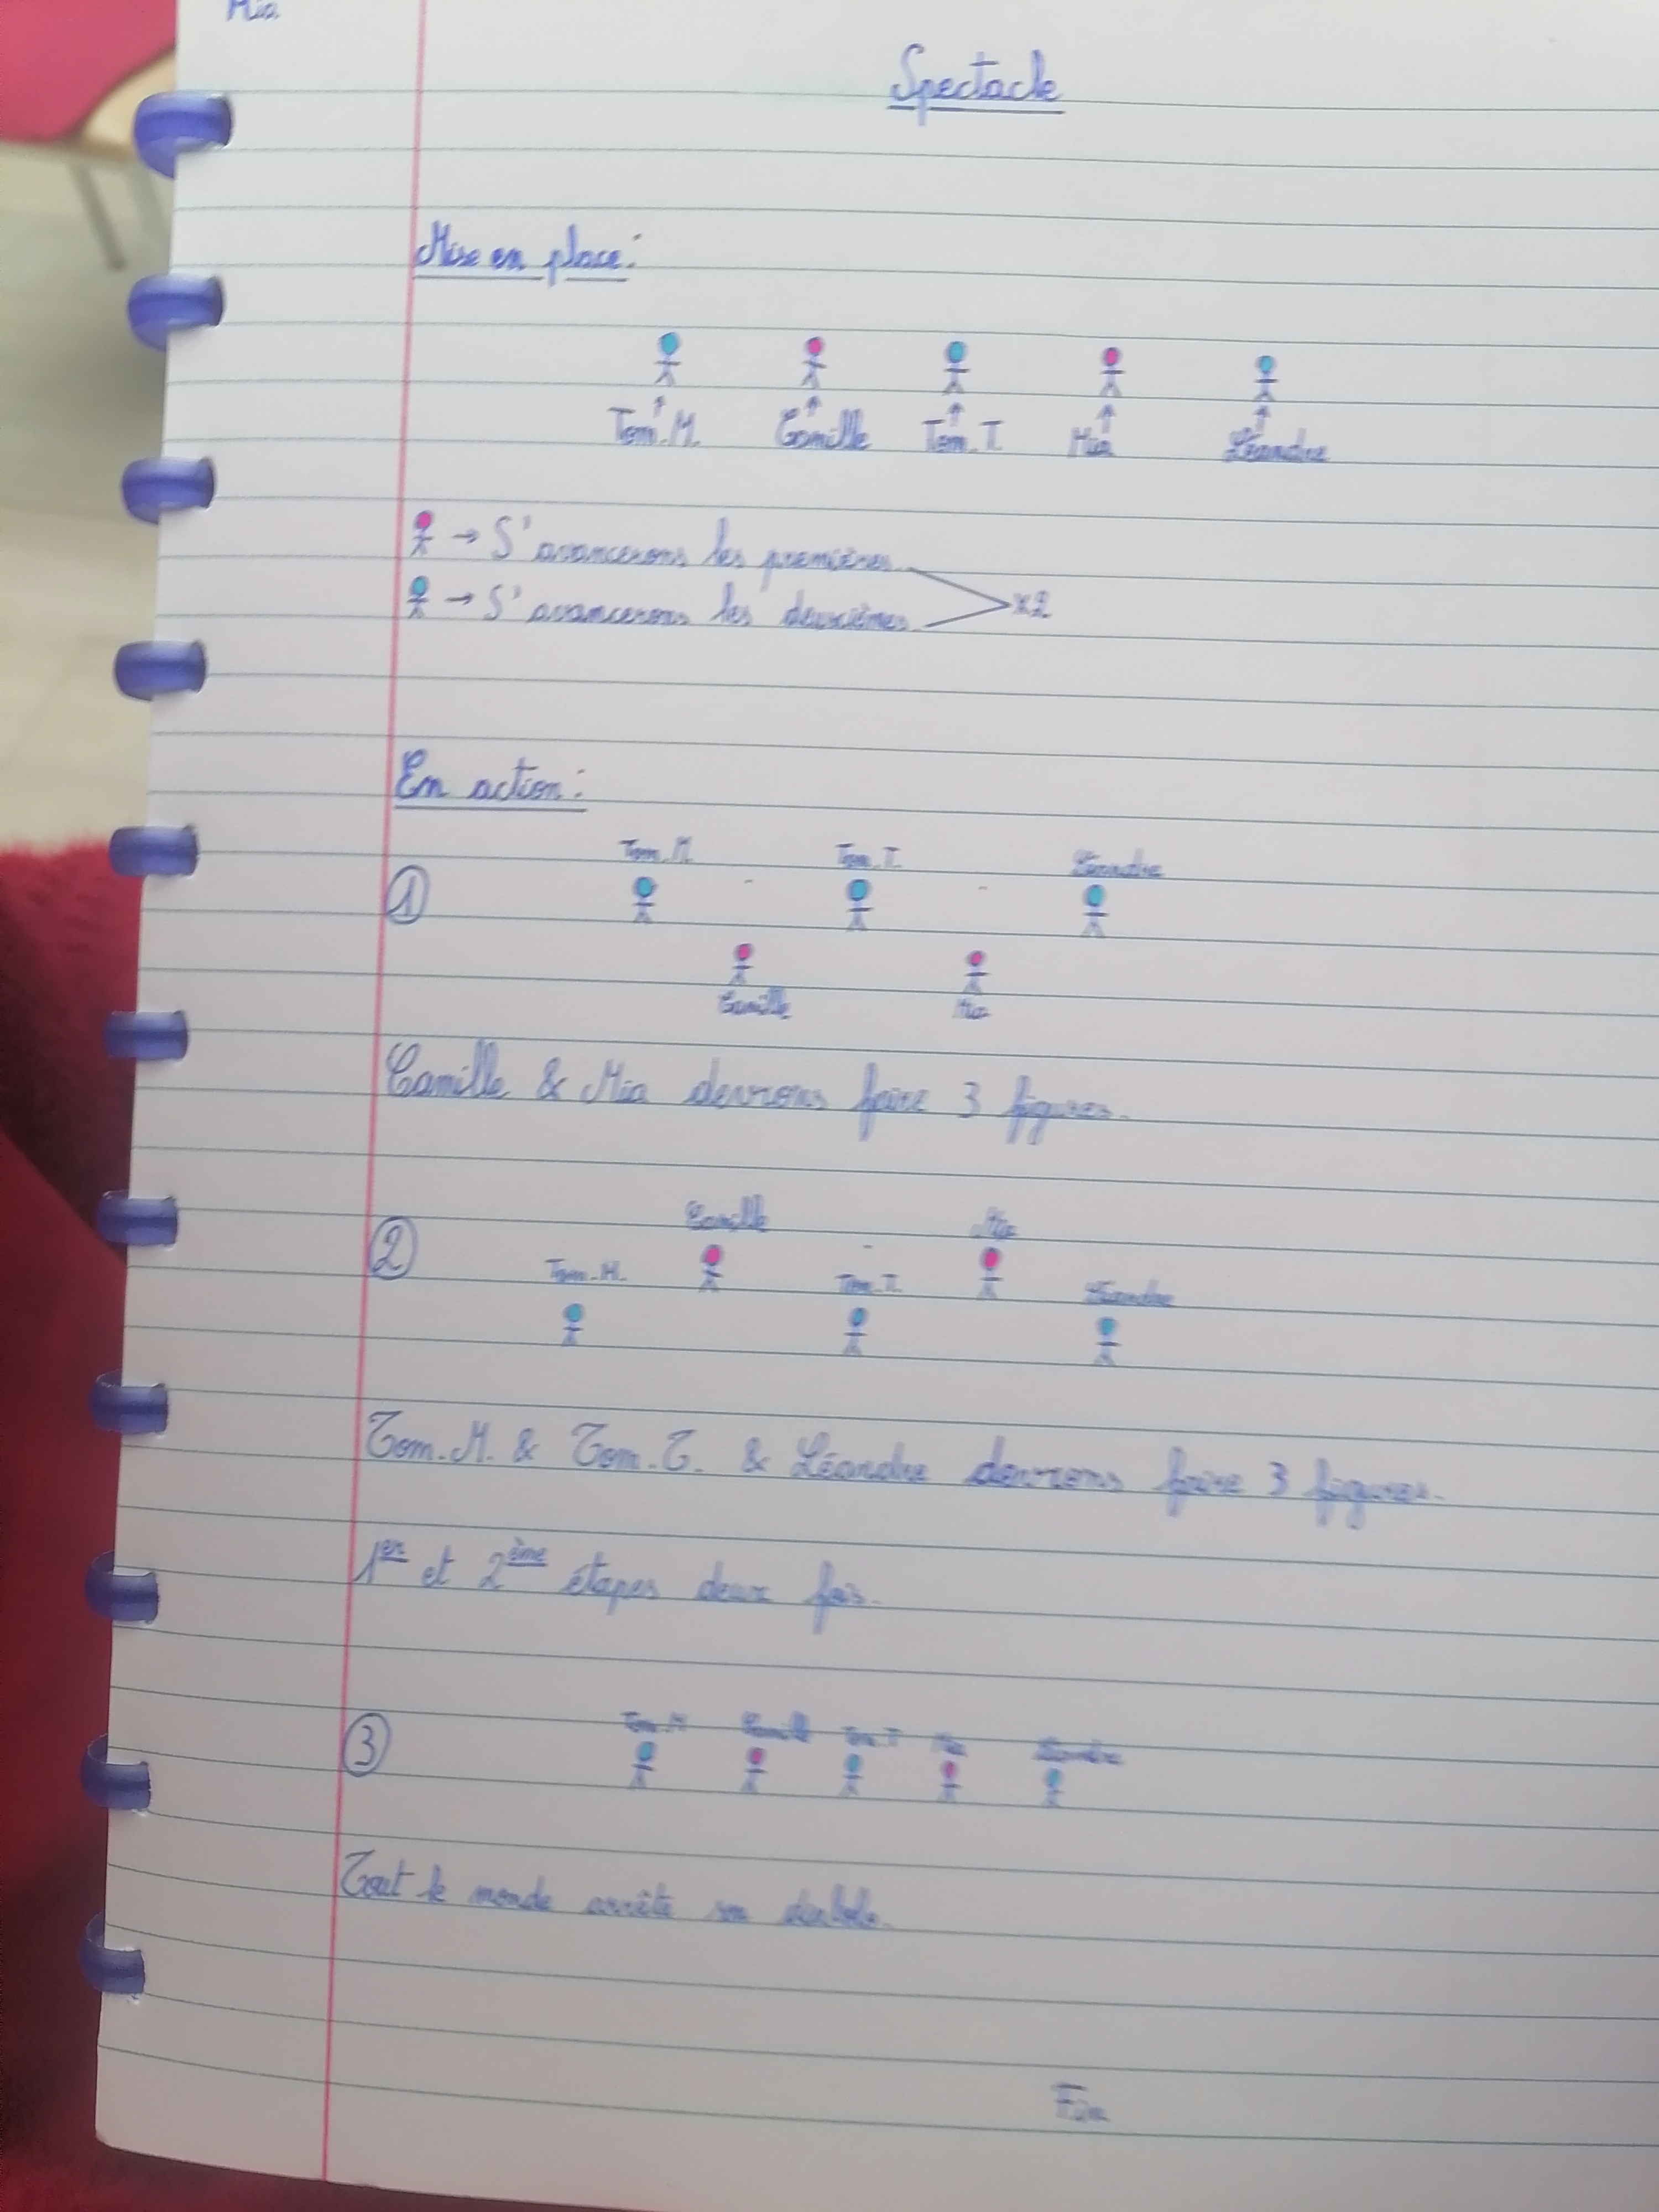 Mia
Spectacle
Mise en place:
Tom.M. Camille Tom.T Mia Léandre
→ S'avancerons les premières
→ S'avancerons les deuxièmes
x2
En action:
Tom.M Tom.T. Léandre
1
Camille Mia
Camille & Mia devrons faire 3 figures.
Camille Mia
2
Tom.M. Tom.T. Léandre
Tom.M. & Tom.T. & Léandre devrons faire 3 figures.
1er et 2ème étapes deux fois.
Tom.M Camille Tom.T Mia Léandre
3
Tout le monde arrête son diabolo.
Fin